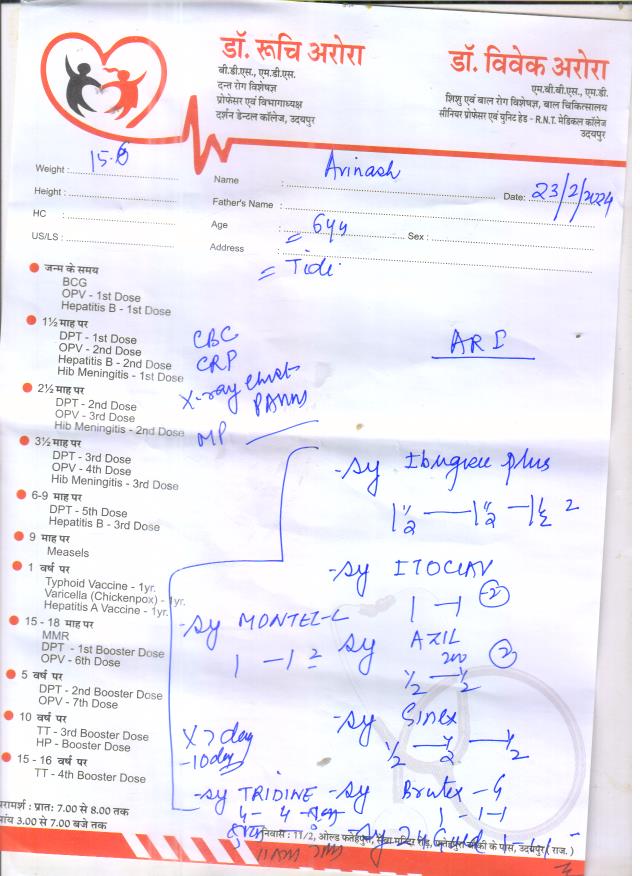 डॉ. रूचि अरोरा
बी.डी.एस., एम.डी.एस.
दन्त रोग विशेषज्ञ
प्रोफेसर एवं विभागाध्यक्ष
दर्शन डेन्टल कॉलेज, उदयपुर
डॉ. विवेक अरोरा
एम.बी.बी.एस., एम.डी.
शिशु एवं बाल रोग विशेषज्ञ, बाल चिकित्सालय
सीनियर प्रोफेसर एवं यूनिट हेड - R.N.T. मेडिकल कॉलेज
उदयपुर
Weight : 15.6
Height :
HC :
US/LS :
Name : Avinash Date: 23/2/2024
Father's Name :
Age : 6yy Sex :
Address : Tidi
जन्म के समय
BCG
OPV - 1st Dose
Hepatitis B - 1st Dose
1½ माह पर
DPT - 1st Dose
OPV - 2nd Dose
Hepatitis B - 2nd Dose
Hib Meningitis - 1st Dose
2½ माह पर
DPT - 2nd Dose
OPV - 3rd Dose
Hib Meningitis - 2nd Dose
3½ माह पर
DPT - 3rd Dose
OPV - 4th Dose
Hib Meningitis - 3rd Dose
6-9 माह पर
DPT - 5th Dose
Hepatitis B - 3rd Dose
9 माह पर
Measels
1 वर्ष पर
Typhoid Vaccine - 1yr.
Varicella (Chickenpox) - 1yr.
Hepatitis A Vaccine - 1yr.
15 - 18 माह पर
MMR
DPT - 1st Booster Dose
OPV - 6th Dose
5 वर्ष पर
DPT - 2nd Booster Dose
OPV - 7th Dose
10 वर्ष पर
TT - 3rd Booster Dose
HP - Booster Dose
15 - 16 वर्ष पर
TT - 4th Booster Dose
CBC
CRP
X-ray chest
MP
ARI
- Sy Ibugesic plus
1½ — 1½ — 1½
- Sy ITOCLAV
1 — 1 2
- Sy MONTEZ-L
1 — 1 2
Sy AZIL
200
½ — ½ 2
- Sy Sinex
½ — ½ — ½
X 7 day
- 10 day
- Sy TRIDINE
4 - 4 -
- Sy Brutex - 4
1 - 1 - 1
परामर्श : प्रातः 7.00 से 8.00 तक
सांय 3.00 से 7.00 बजे तक
निवास : 11/2, ओल्ड फतेहपुरा, सेवा मन्दिर रोड, फतेहपुरा चौकी के पास, उदयपुर ( राज. )